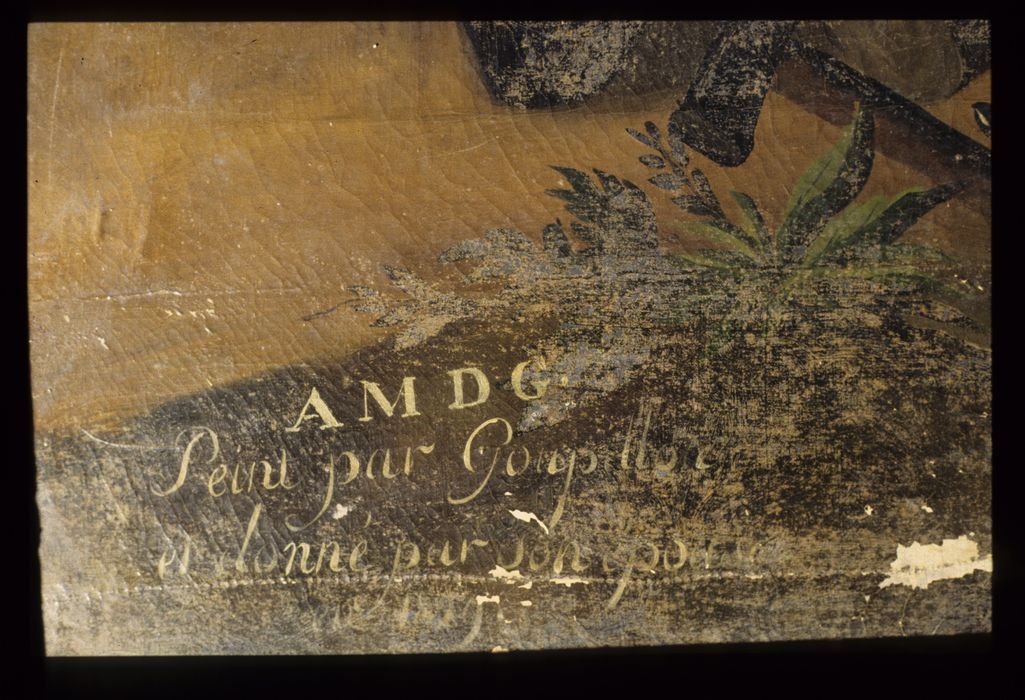 AMDG.
Peint par Goupillon
et donné par son épouse